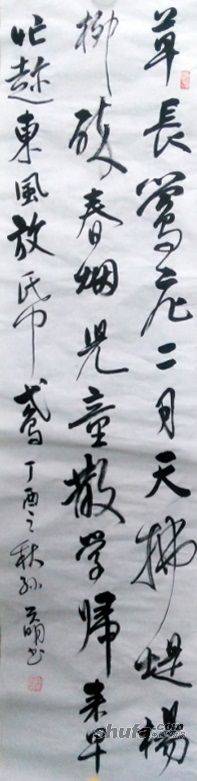 草長鶯飛二月天拂堤楊
柳醉春烟兒童散学歸来早
忙趂東風放帋鳶丁酉之秋孫